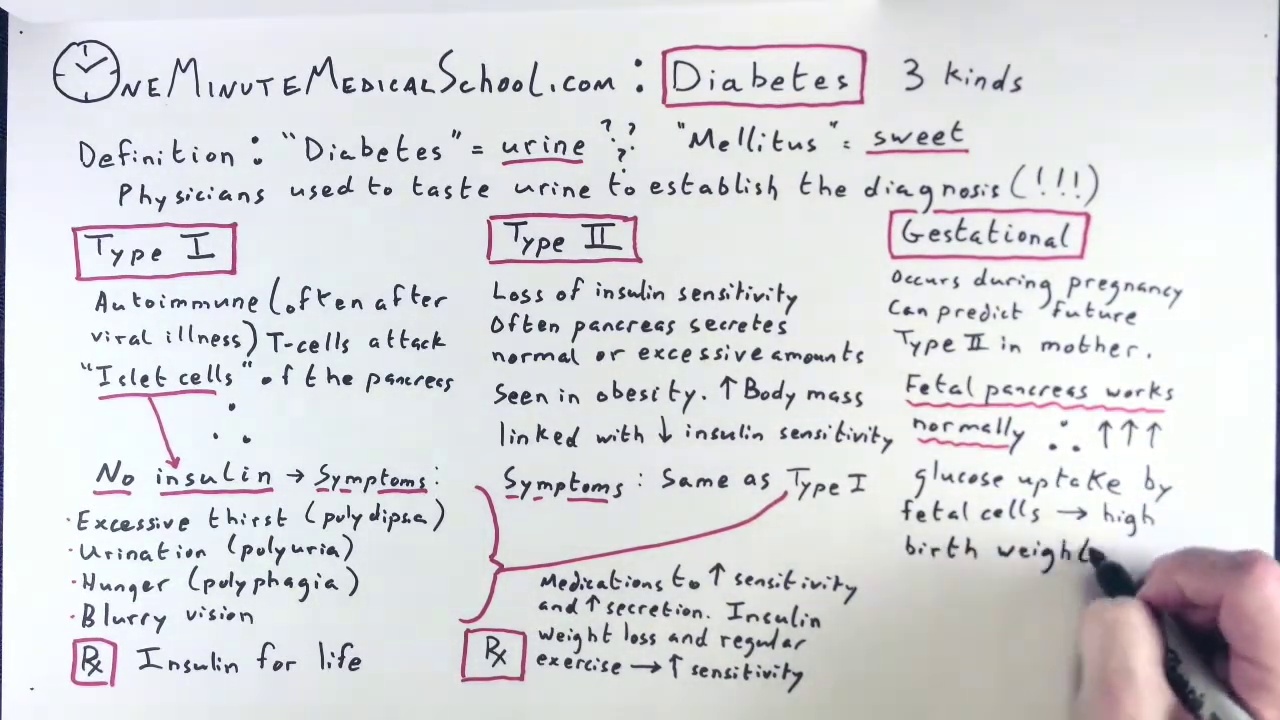 OneMinuteMedicalSchool.com : Diabetes 3 kinds
Definition : "Diabetes" = urine ??? "Mellitus" = sweet
Physicians used to taste urine to establish the diagnosis (!!!)
Type I
Autoimmune (often after
viral illness) T-cells attack
"Islet cells" of the pancreas
∴
No insulin → Symptoms :
· Excessive thirst (polydipsia)
· Urination (polyuria)
· Hunger (polyphagia)
· Blurry vision
Rx Insulin for life
Type II
Loss of insulin sensitivity
Often pancreas secretes
normal or excessive amounts
Seen in obesity. ↑ Body mass
linked with ↓ insulin sensitivity
Symptoms : Same as Type I
Rx
Medications to ↑ sensitivity
and ↑ secretion. Insulin
weight loss and regular
exercise → ↑ sensitivity
Gestational
Occurs during pregnancy
Can predict future
Type II in mother.
Fetal pancreas works
normally ∴ ↑↑↑
glucose uptake by
fetal cells → high
birth weight